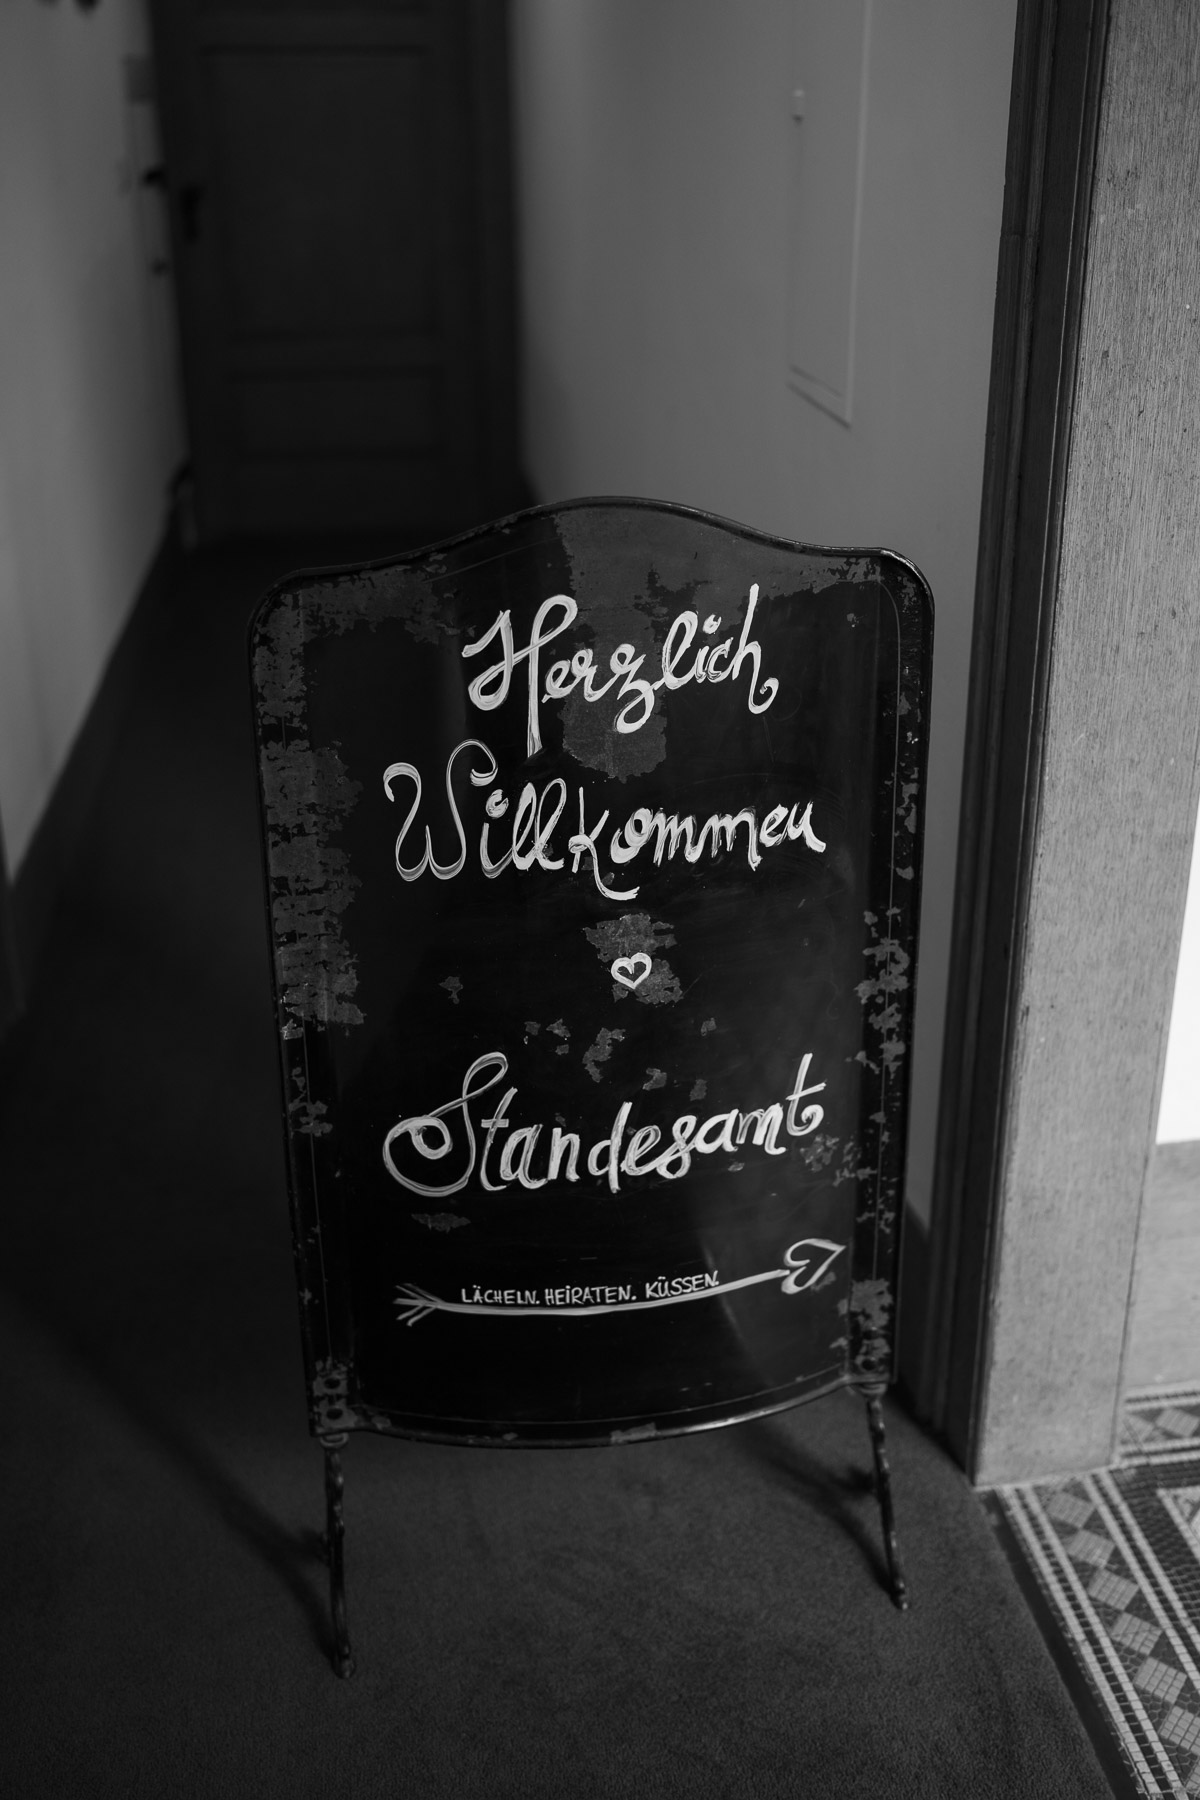 Herzlich
Willkommen
Standesamt
LÄCHELN. HEIRATEN. KÜSSEN.